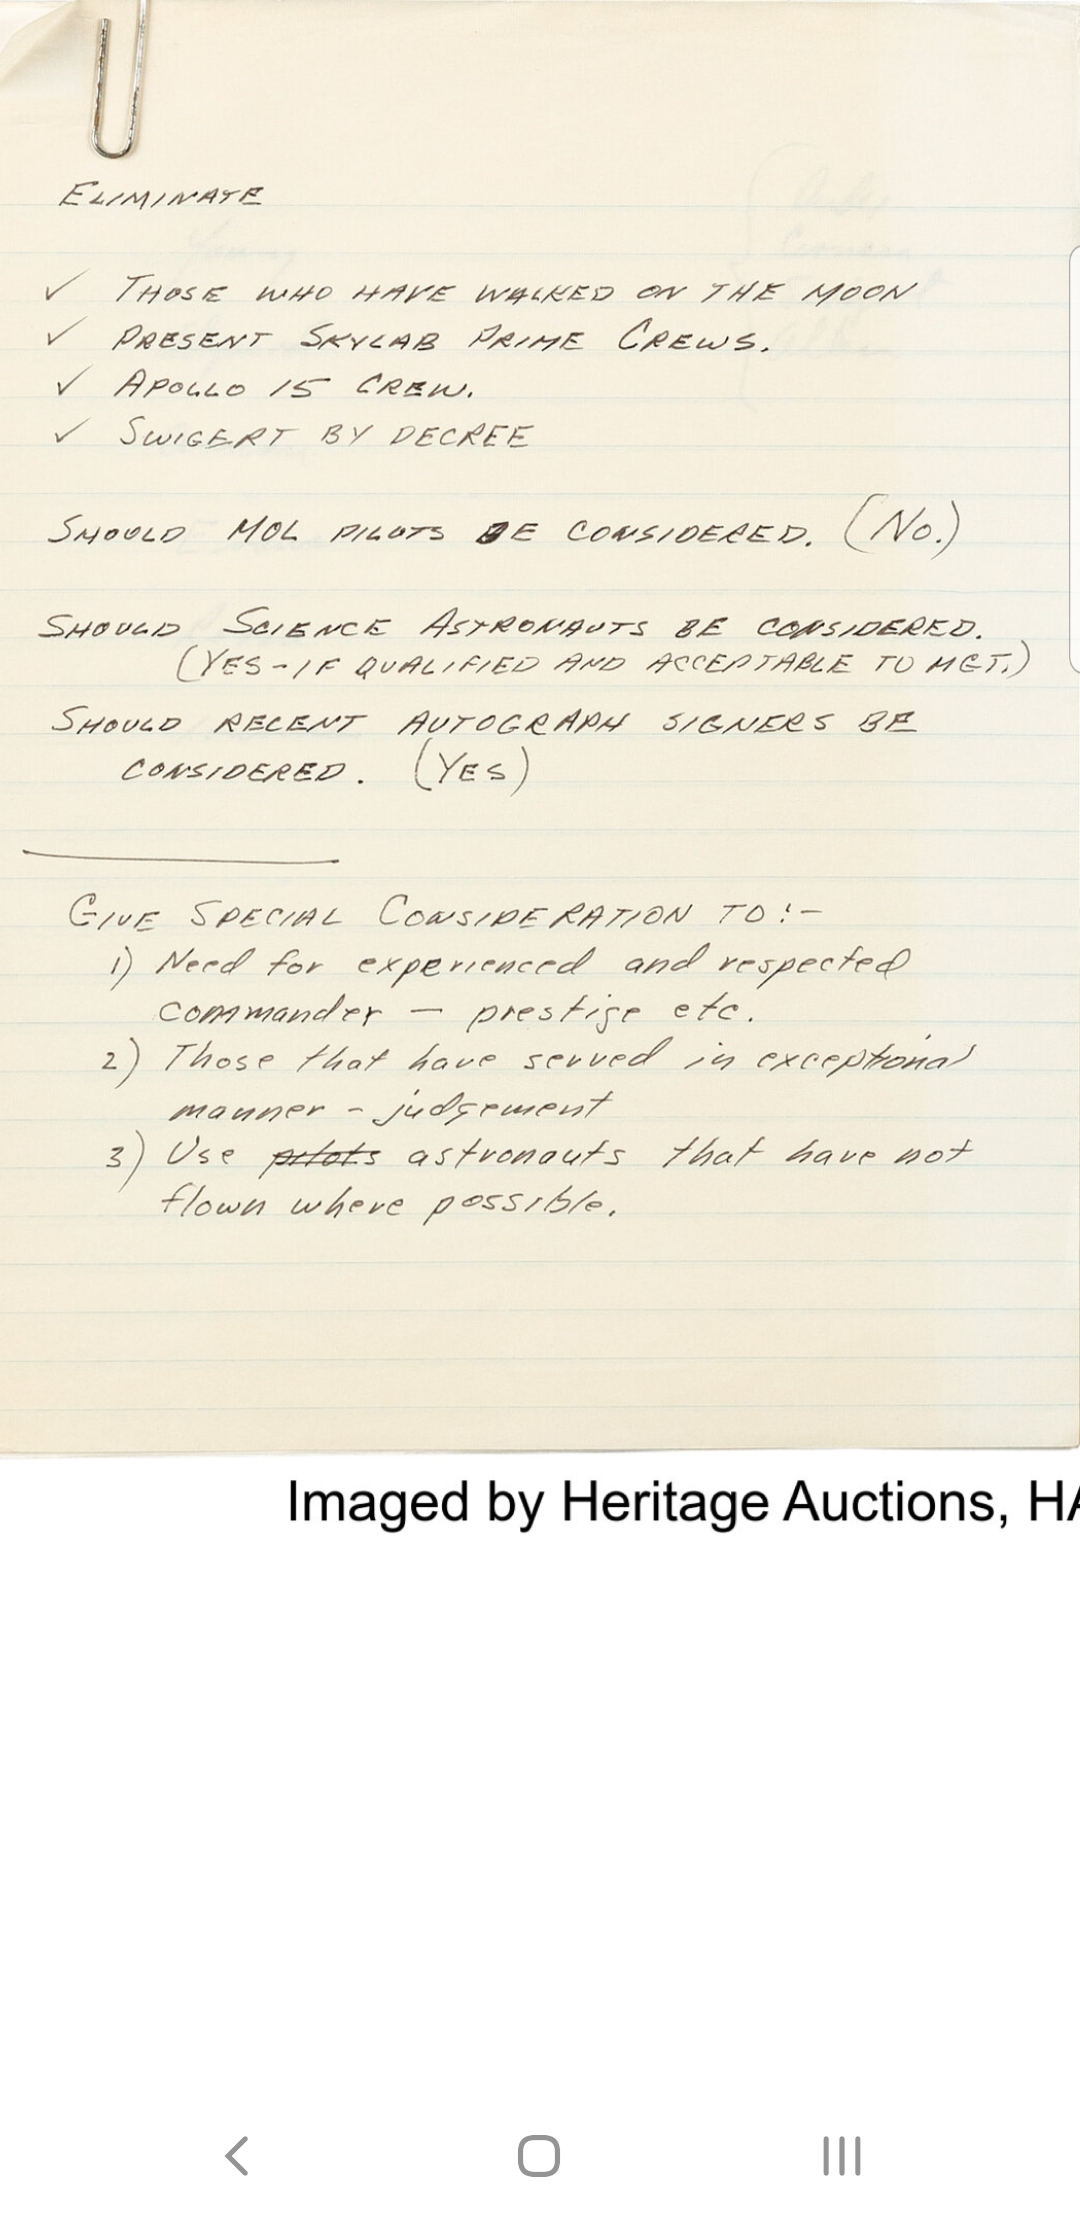 ELIMINATE
✓ THOSE WHO HAVE WALKED ON THE MOON
✓ PRESENT SKYLAB PRIME CREWS.
✓ APOLLO 15 CREW.
✓ SWIGERT BY DECREE
SHOULD MOL PILOTS BE CONSIDERED. (NO.)
SHOULD SCIENCE ASTRONAUTS BE CONSIDERED.
(YES-IF QUALIFIED AND ACCEPTABLE TO MGT.)
SHOULD RECENT AUTOGRAPH SIGNERS BE
CONSIDERED. (YES)
GIVE SPECIAL CONSIDERATION TO:-
1) Need for experienced and respected
commander — prestige etc.
2) Those that have served in exceptional
manner - judgement
3) Use pilots astronauts that have not
flown where possible.
Imaged by Heritage Auctions, HA